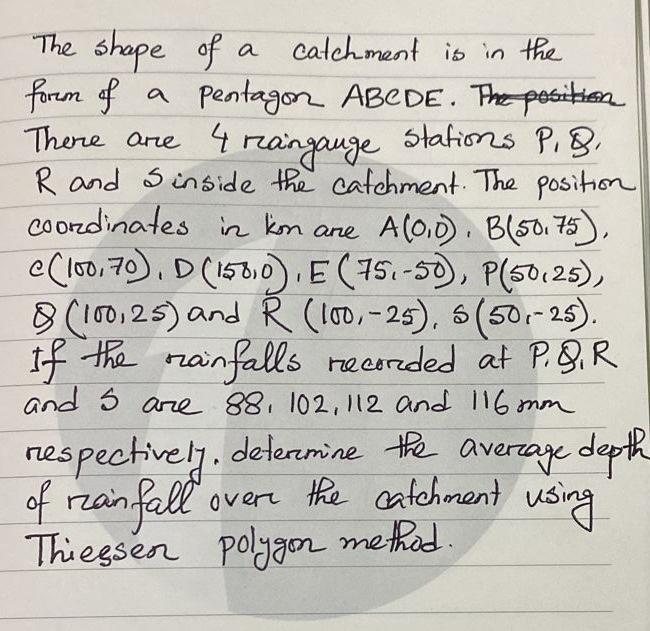 The shape of a catchment is in the
form of a pentagon ABCDE. The position
There are 4 raingauge stations P, Q,
R and S inside the catchment. The position
coordinates in km are A(0,0), B(50,75),
C(100,70), D(150,0), E(75,-50), P(50,25),
Q(100,25) and R (100,-25), S(50,-25).
If the rainfalls recorded at P, Q, R
and S are 88, 102, 112 and 116 mm
respectively, determine the average depth
of rainfall over the catchment using
Thiessen polygon method.